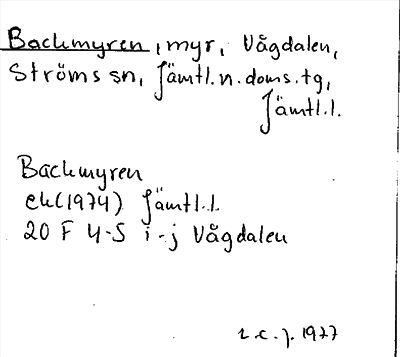 Backmyren, myr, Vågdalen,
Ströms sn, Jämtl. n. doms. tg,
Jämtl. l.
Backmyren
ek (1974) Jämtl. l.
20 F 4-5 i-j Vågdalen
1977